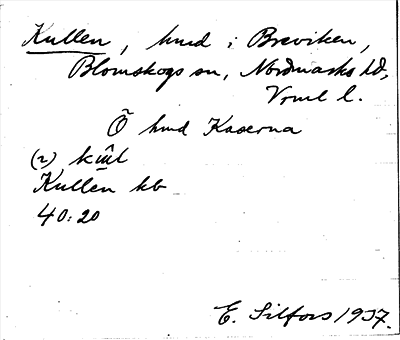 Kullen, hmd i Breviken,
Blomskogs sn, Nordmarks hd,
Vrml l.
Õ hmd Kaserna
(2)
Kullen kb
40:20
E. Silfors 1937.